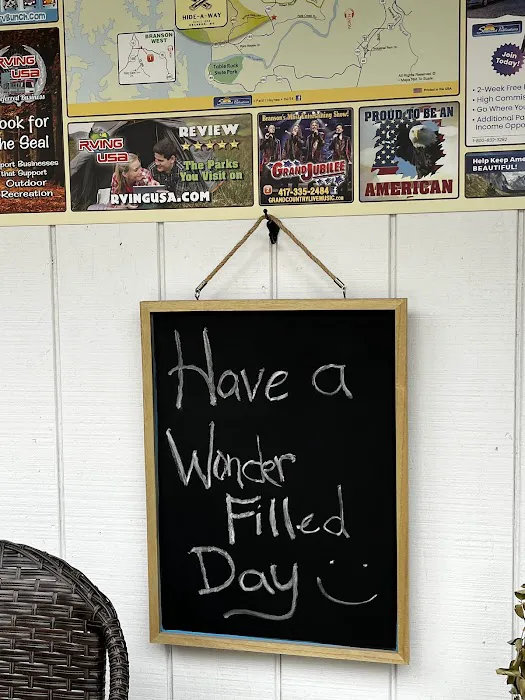 rvBunch.Com
HIDE-A-WAY
BRANSON
WEST
Table Rock
State Park
All Rights Reserved ©
Maps Not To Scale
Printed in the USA
RVING
USA
Look for
the Seal
Support Businesses
that Support
Outdoor
Recreation
RVING
USA
REVIEW
The Parks
You Visit on
RVINGUSA.COM
Branson's Most Entertaining Show!
GRAND JUBILEE
417-335-2484
GRANDCOUNTRYLIVEMUSIC.COM
PROUD TO BE AN
AMERICAN
Join
Today!
• 2-Week Free
• High Commis
• Go Where You
• Additional Pa
Income Oppo
Help Keep Ame
BEAUTIFUL!
Have a
Wonder
Filled
Day